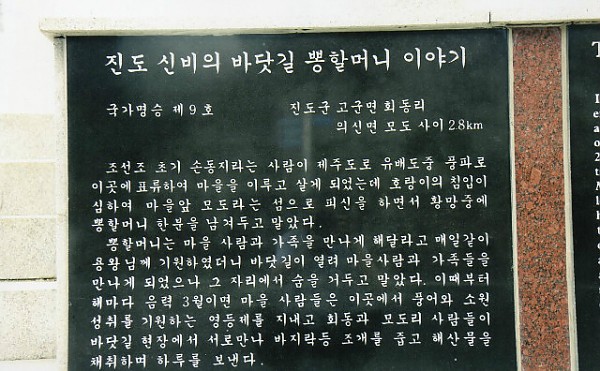 진도 신비의 바닷길 뽕할머니 이야기
국가명승 제9호 진도군 고군면 회동리
의신면 모도 사이 2.8km
조선조 초기 손동지라는 사람이 제주도로 유배도중 풍파로
이곳에 표류하여 마을을 이루고 살게 되었는데 호랑이의 침입이
심하여 마을앞 모도라는 섬으로 피신을 하면서 황망중에
뽕할머니 한분을 남겨두고 말았다.
뽕할머니는 마을 사람과 가족을 만나게 해달라고 매일같이
용왕님께 기원하였더니 바닷길이 열려 마을사람과 가족들을
만나게 되었으나 그 자리에서 숨을 거두고 말았다. 이때부터
해마다 음력 3월이면 마을 사람들은 이곳에서 풍어와 소원
성취를 기원하는 영등제를 지내고 회동과 모도리 사람들이
바닷길 현장에서 서로만나 바지락등 조개를 줍고 해산물을
채취하며 하루를 보낸다.